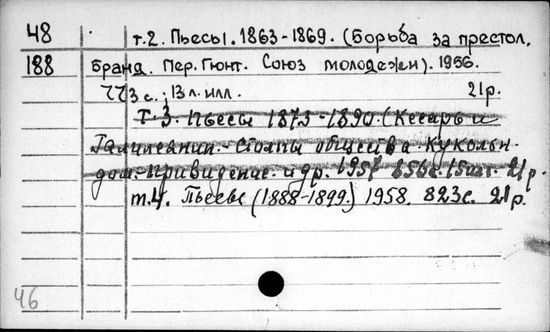 48 т.2. Пьесы. 1863-1869. (Борьба за престол.
188 Бранд. Пер. Гюнт. Союз молодежи). 1956.
773 с.; 13 л. илл. 21р.
т.3. Пьесы 1873-1890 (Кесарь и
Галилеянин. Столпы общества Кукольн.
дом. Привидение. и др. 1957 856с. 21р.
т.4. Пьесы (1888-1899.) 1958. 823с. 21р.
46